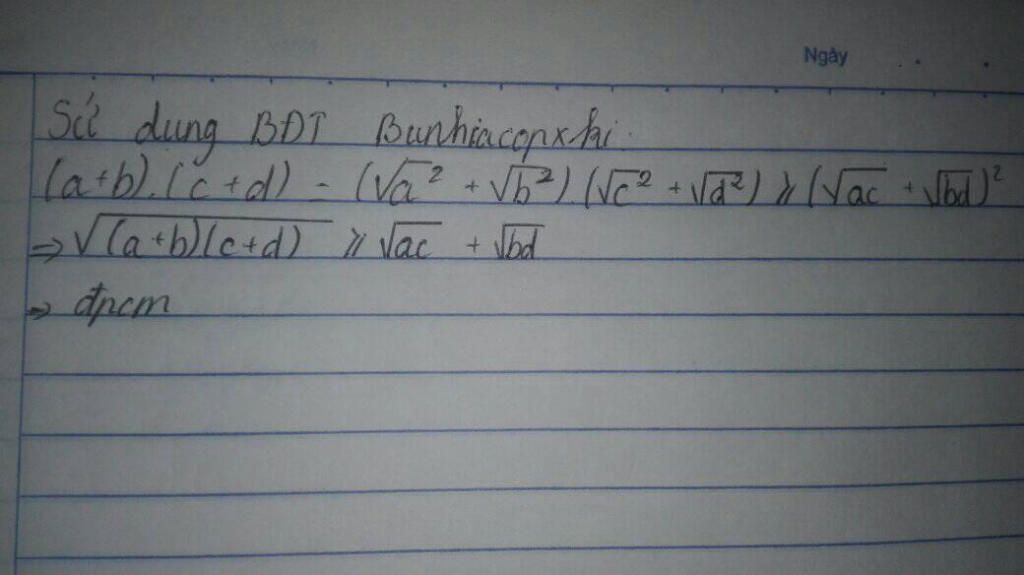 Ngày
Sử dụng BĐT Bunhiacopxki.
(a+b).(c+d) = (√a² + √b²).(√c² + √d²) ≥ (√ac + √bd)²
⇒ √(a+b)(c+d) ≥ √ac + √bd
⇒ đpcm